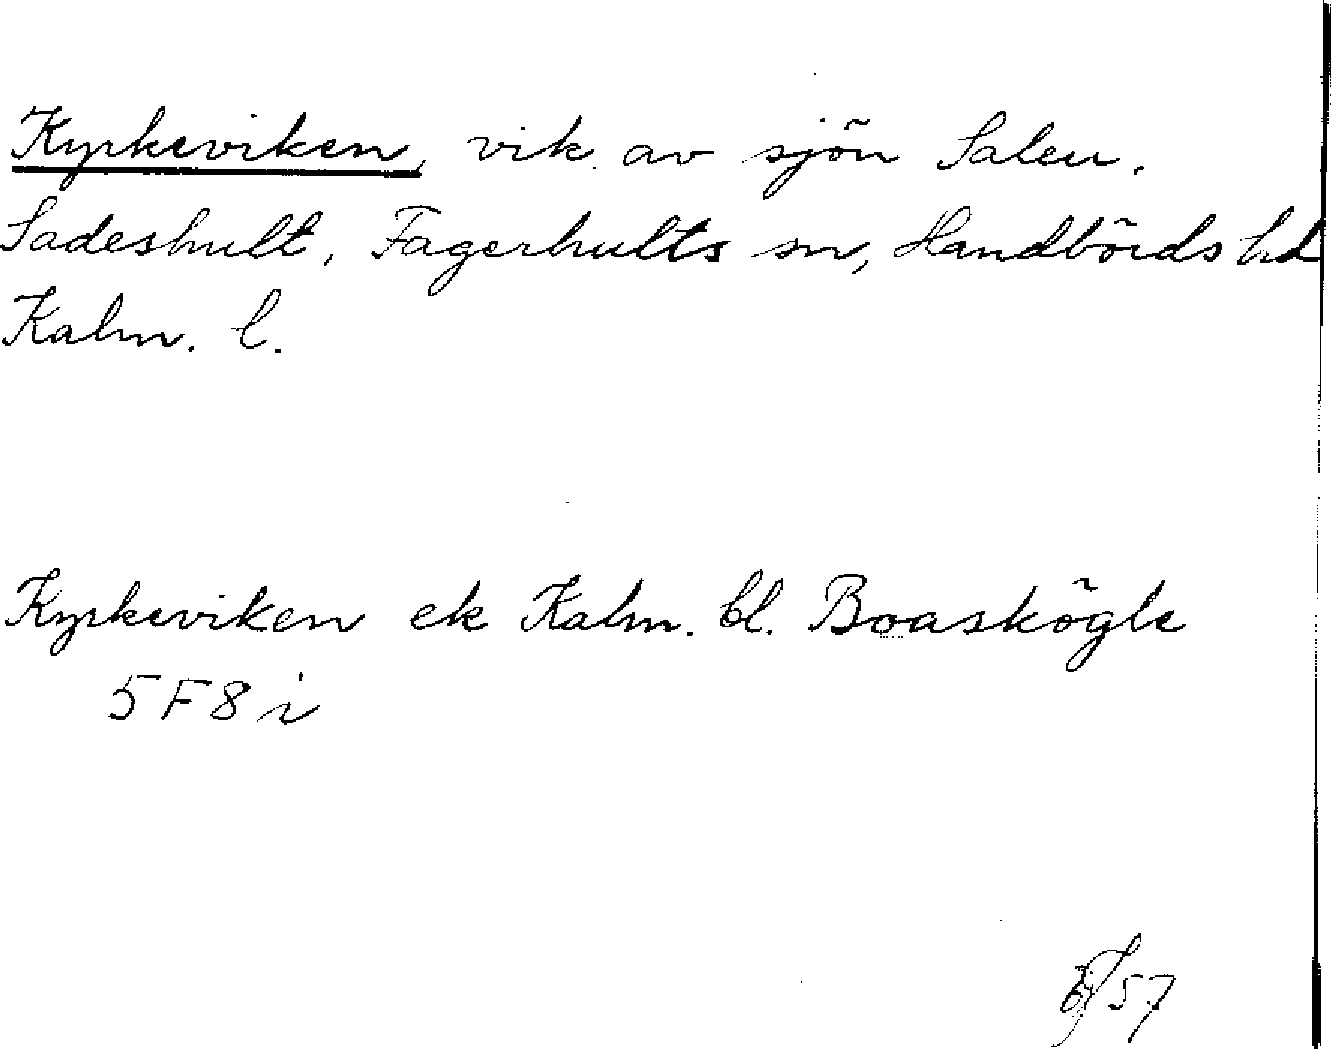 Kyrkeviken, vik av sjön Salen.
Sadeshult, Fagerhults sn, Handbörds hd
Kalm. l.
Kyrkeviken ek Kalm. bl. Boaskögle
5F8i
57